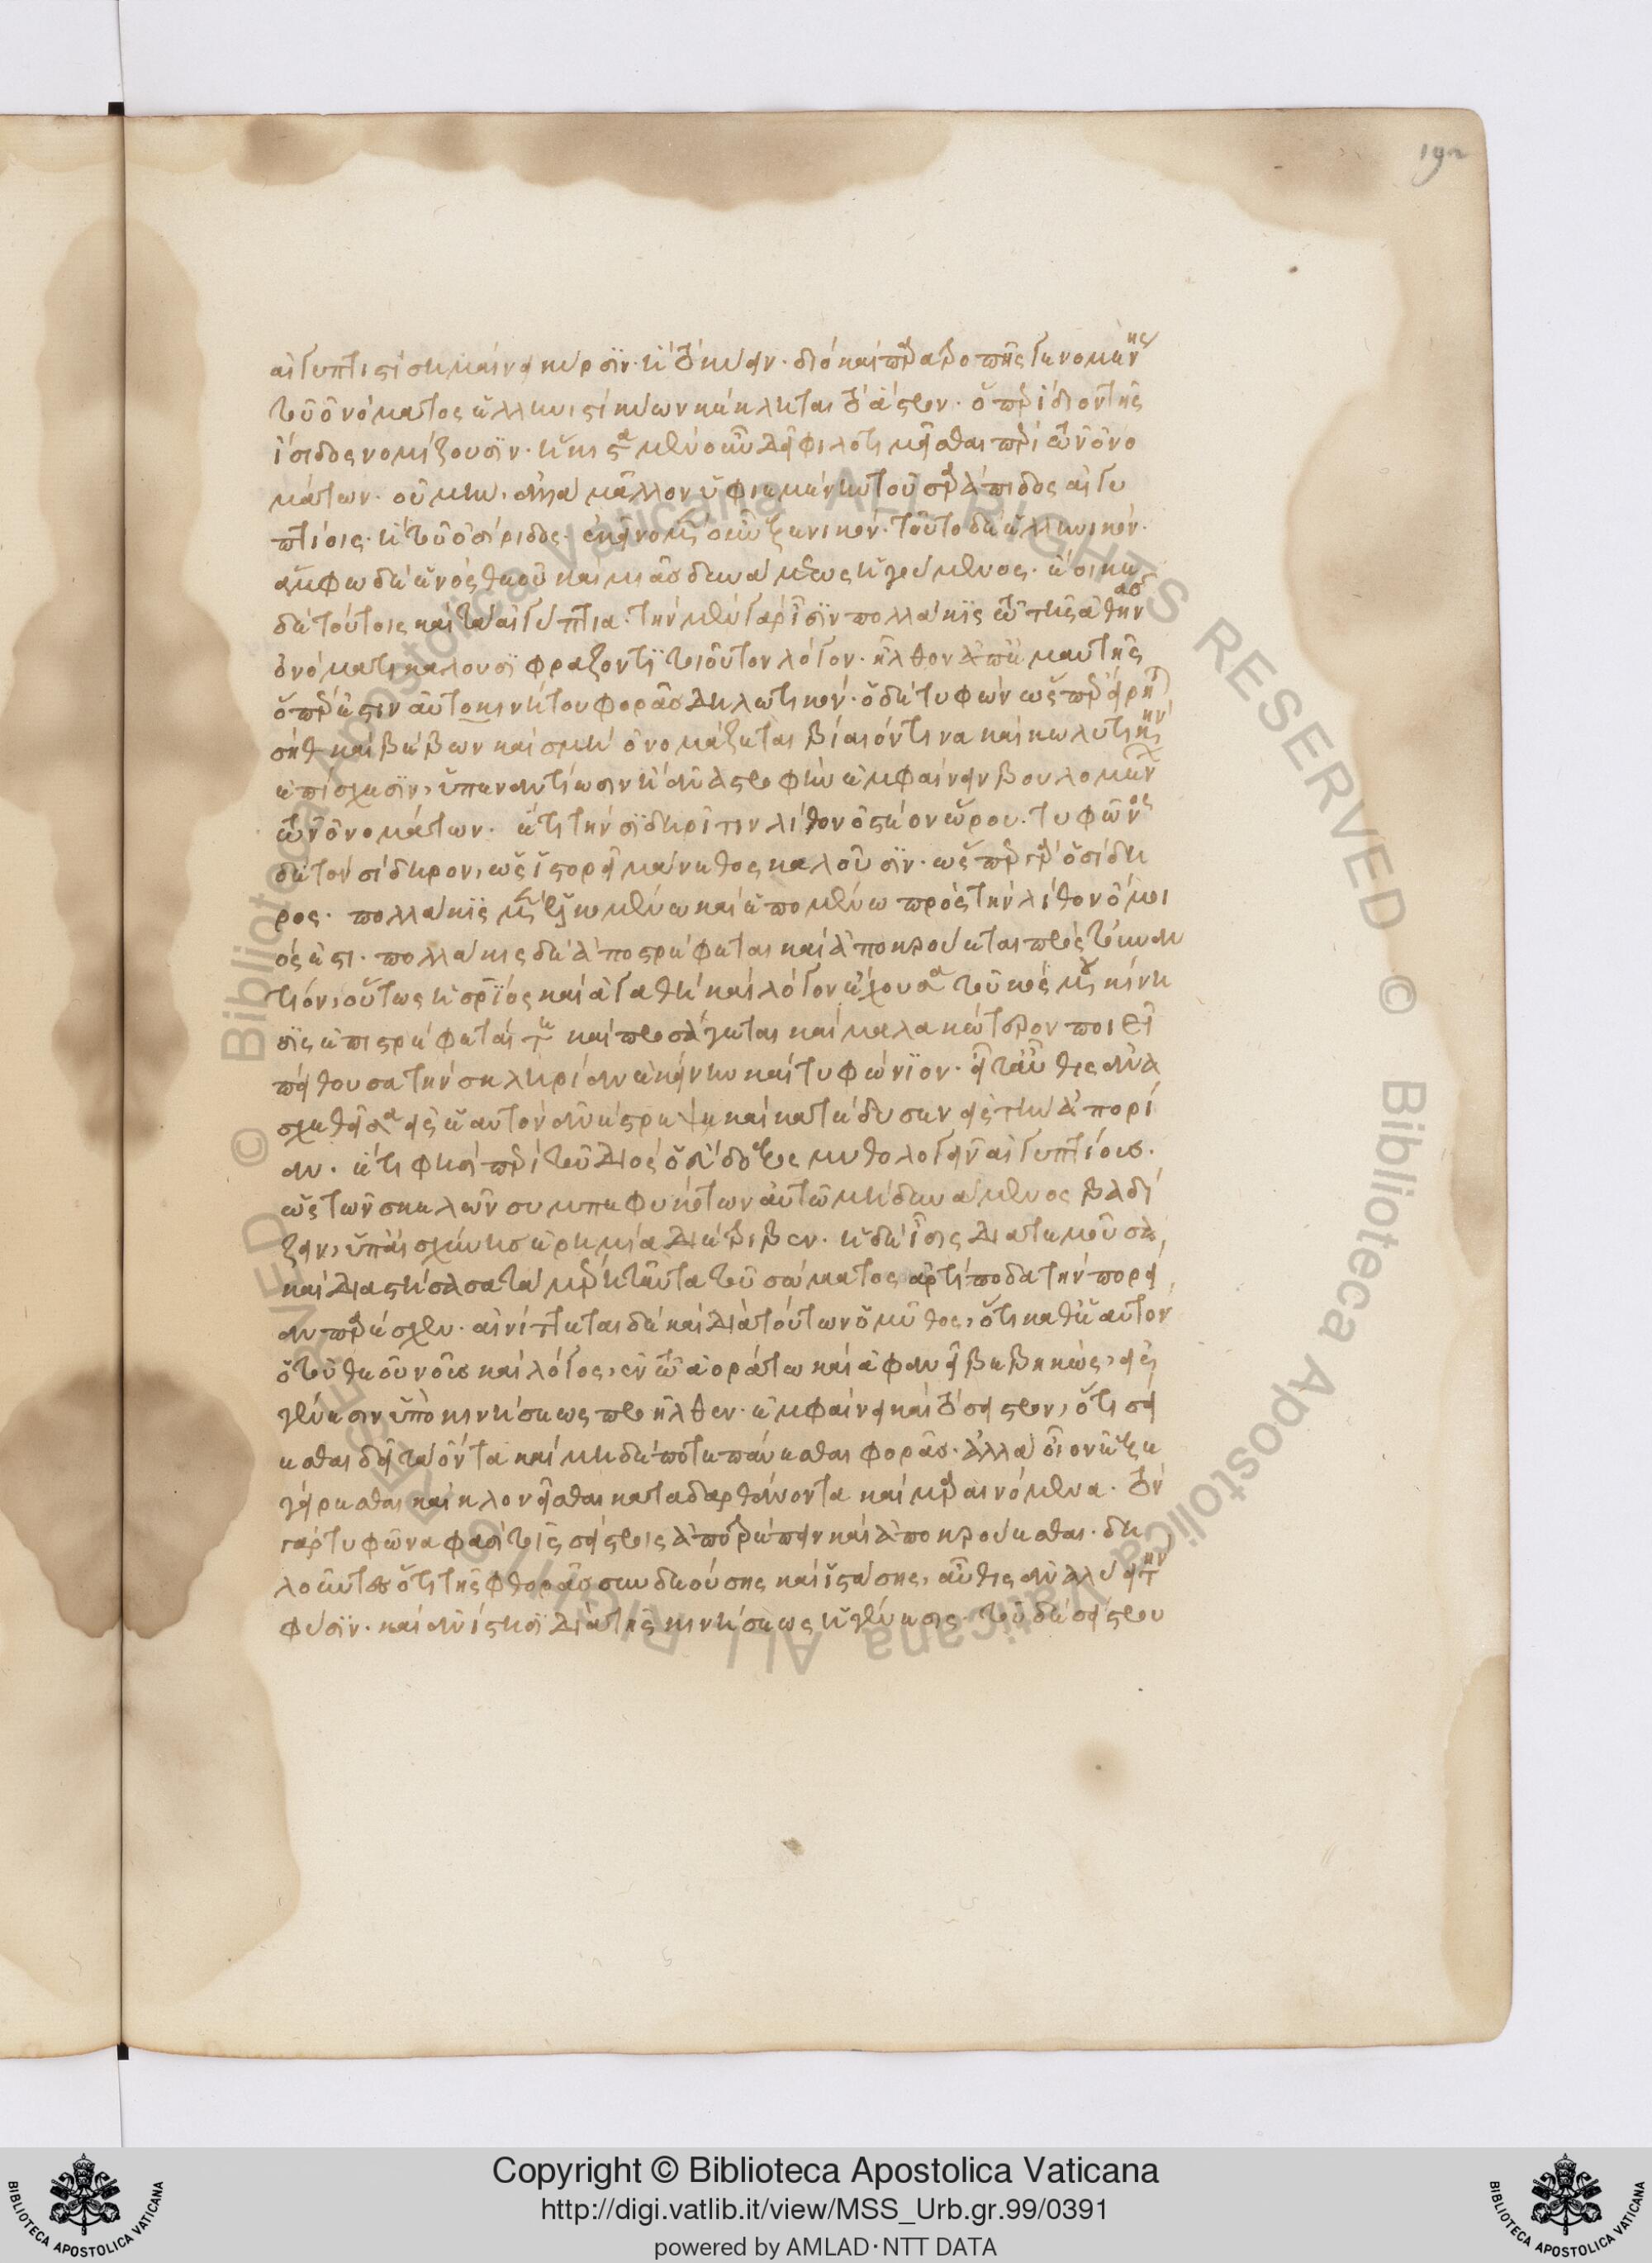 αἰγυπτιστὶ σημαίνει κύρσιν· ἢ τὸ κύειν· διὸ καὶ παρατροπῆς γενομένης
τοῦ ὀνόματος ἑλληνιστὶ κύων κέκληται τὸ ἄστρον· ὅπερ ἴδιον τῆς
ἴσιδος νομίζουσιν· ἥκιστα μὲν οὖν δεῖ φιλοτιμεῖσθαι περὶ τῶν ὀνο
μάτων· οὐ μὴν, ἀλλὰ μᾶλλον ὑφιεμένην τοῦ σαράπιδος αἰγυ
πτίοις· ἢ τοῦ ὀσίριδος· ἐκεῖνο μὲν οὖν ξενικόν· τοῦτο δὲ ἑλληνικόν·
ἄμφω δὲ ἑνὸς θεοῦ καὶ μιᾶς δυνάμεως ἡγούμενος· ἔοικε
δὲ τούτοις καὶ τὰ αἰγύπτια· τὴν μὲν γὰρ ἶσιν πολλάκις τῷ τῆς ἀθηνᾶς
ὀνόματι καλοῦσι φράζοντι τοιοῦτον λόγον· ἦλθον ἀπ' ἐμαυτῆς
ὅπερ ἐστὶν αὐτοκινήτου φορᾶς δηλωτικόν· ὁ δὲ τυφὼν ὥσπερ εἴρηται
σὴθ καὶ βέβων καὶ σμὺ ὀνομάζεται βίαιόν τινα καὶ κωλυτικὴν
ἐπίσχεσιν, ὑπεναντίωσιν ἢ ἀναστροφὴν ἐμφαίνειν βουλομένων
τῶν ὀνομάτων· ἔτι τὴν σιδηρίτιν λίθον ὀστέον ὥρου· τυφῶνος
δὲ τὸν σίδηρον, ὡς ἱστορεῖ μάνεθος καλοῦσιν· ὥσπερ γὰρ ὁ σίδη
ρος· πολλάκις μὲν ἑλκομένω καὶ ἑπομένω πρὸς τὴν λίθον ὅμοι
ός ἐστι· πολλάκις δὲ ἀποστρέφεται καὶ ἀποκρούεται πρὸς τοὐναν
τίον, οὕτως ἡ σωτήριος καὶ ἀγαθὴ καὶ λόγον ἔχουσα τοῦ κόσμου κίνη
σις ἐπιστρέφεταί τε καὶ προσάγεται καὶ μαλακώτερον ποιεῖ
πείθουσα τὴν σκληρίαν ἐκείνην καὶ τυφώνιον· εἶτ' αὖθις ἀνα
σχεθεῖσα εἰς ἑαυτὸν ἀνέστρεψε καὶ κατέδυσεν εἰς τὴν ἀπορί
αν· ἔτι φησὶ περὶ τοῦ διὸς ὁ εὔδοξος μυθολογεῖν αἰγυπτίους·
ὡς τῶν σκελῶν συμπεφυκότων αὐτῶ μὴ δυνάμενος βαδί
ζειν, ὑπ' αἰσχύνης ἐρημία διέτριβεν· ἡ δὲ ἶσις διατεμοῦσα,
καὶ διαστήσασα τὰ μέρη ταῦτα τοῦ σώματος ἀρτίποδα τὴν πορεί
αν παρέσχεν· αἰνίττεται δὲ καὶ διὰ τούτων ὁ μῦθος, ὅτι καθ' ἑαυτὸν
ὁ τοῦ θεοῦ νοῦς καὶ λόγος, ἐν τῶ ἀοράτω καὶ ἀφανεῖ βεβηκὼς, εἰς
γένεσιν ὑπὸ κινήσεως προῆλθεν· ἐμφαίνει καὶ τὸ σεῖστρον, ὅτι σεί
εσθαι δεῖ τὰ ὄντα καὶ μηδέποτε παύεσθαι φορᾶς· ἀλλ' οἷον ἐξε
γείρεσθαι καὶ κλονεῖσθαι καταδαρθάνοντα καὶ μαραινόμενα· τὸν
γὰρ τυφῶνα φασὶ τοῖς σείστροις ἀποτρέπειν καὶ ἀποκρούεσθαι· δη
λοῦντες ὅτι τῆς φθορᾶς συνδεούσης καὶ ἱστάσης, αὖθις ἀναλύει τὴν
φύσιν· καὶ ἀνίστησι διὰ τῆς κινήσεως ἡ γένεσις· τοῦ δὲ σείστρου
Copyright © Biblioteca Apostolica Vaticana
http://digi.vatlib.it/view/MSS_Urb.gr.99/0391
powered by AMLAD·NTT DATA